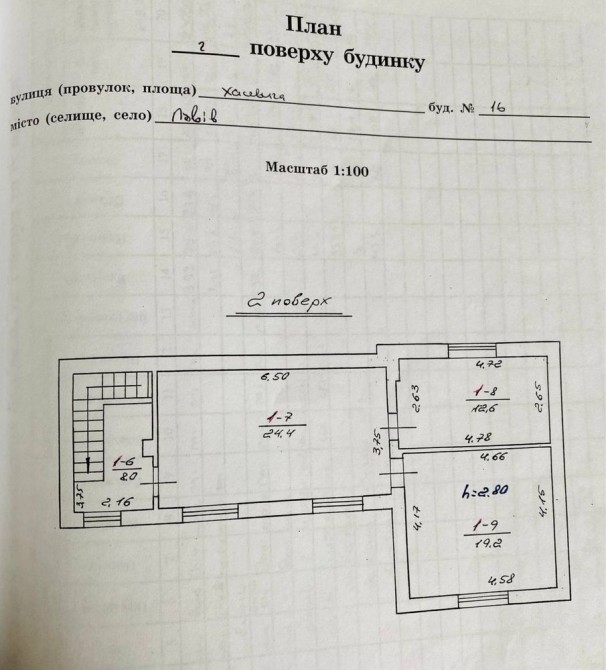 План
2 поверху будинку
вулиця (провулок, площа) Хасевича буд. № 16
місто (селище, село) Львів
Масштаб 1:100
2 поверх
6.50
4.72
1-8
12,6
2.63
2.65
1-7
24.4
4.78
3,75
4.66
1-6
8.0
h=2.80
3,75
2.16
4,17
4.15
1-9
19.2
4.58